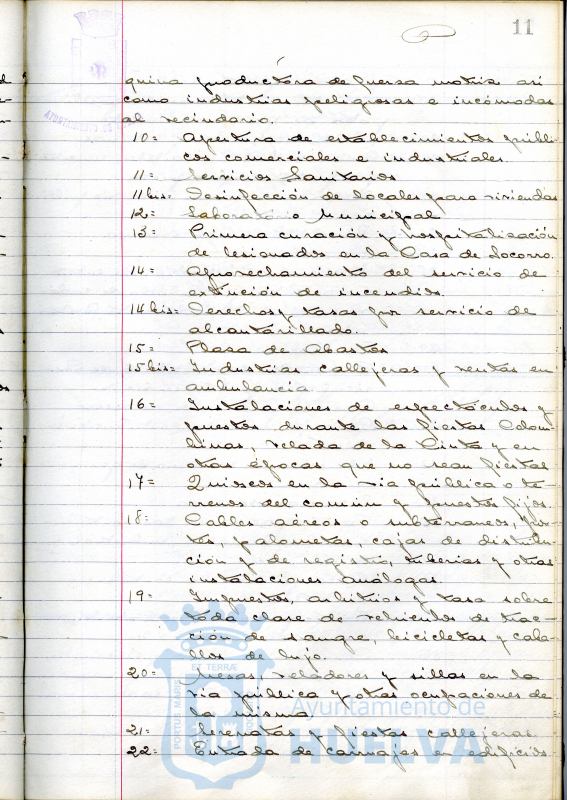 11
quina productora de fuersa motriz así
como industrias peligrosas e incómodas
al vecindario.
10= Apertura de establecimientos públi-
cos comerciales e industriales.
11= Servicios Sanitarios
11 bis= Desinfección de locales para viviendas
12= Laboratorio Municipal
13= Primera curación y hospitalización
de lesionados en la Casa de Socorro.
14= Aprovechamiento del servicio de
extinción de incendios.
14 bis= Derechos y tasas por servicio de
alcantarillado.
15= Plasa de Abastos
15 bis= Industrias callejeras y ventas en
ambulancia
16= Instalaciones de espectáculos y
puestos durante las fiestas Colom-
binas, velada de la Cinta y en
otras épocas que no sean fiestas
17= Quioscos en la via pública o te-
rrenos del comun y puestos fijos.
18= Cables aéreos o subterraneos, pos-
tes, palometas, cajas de distribu-
ción y de registro, tuberias y otras
instalaciones análogas.
19= Impuestos, arbitrios y tasa sobre
toda clase de vehiculos de trac-
ción de sangre, bicicletas y caba-
llos de lujo.
20= Mesas, veladores y sillas en la
via pública y otras ocupaciones de
la misma
21= Serenatas y fiestas callejeras
22= Entrada de carruajes en edificios
PORTUS MARIS
ET TERRAE
Ayuntamiento de
HUELVA